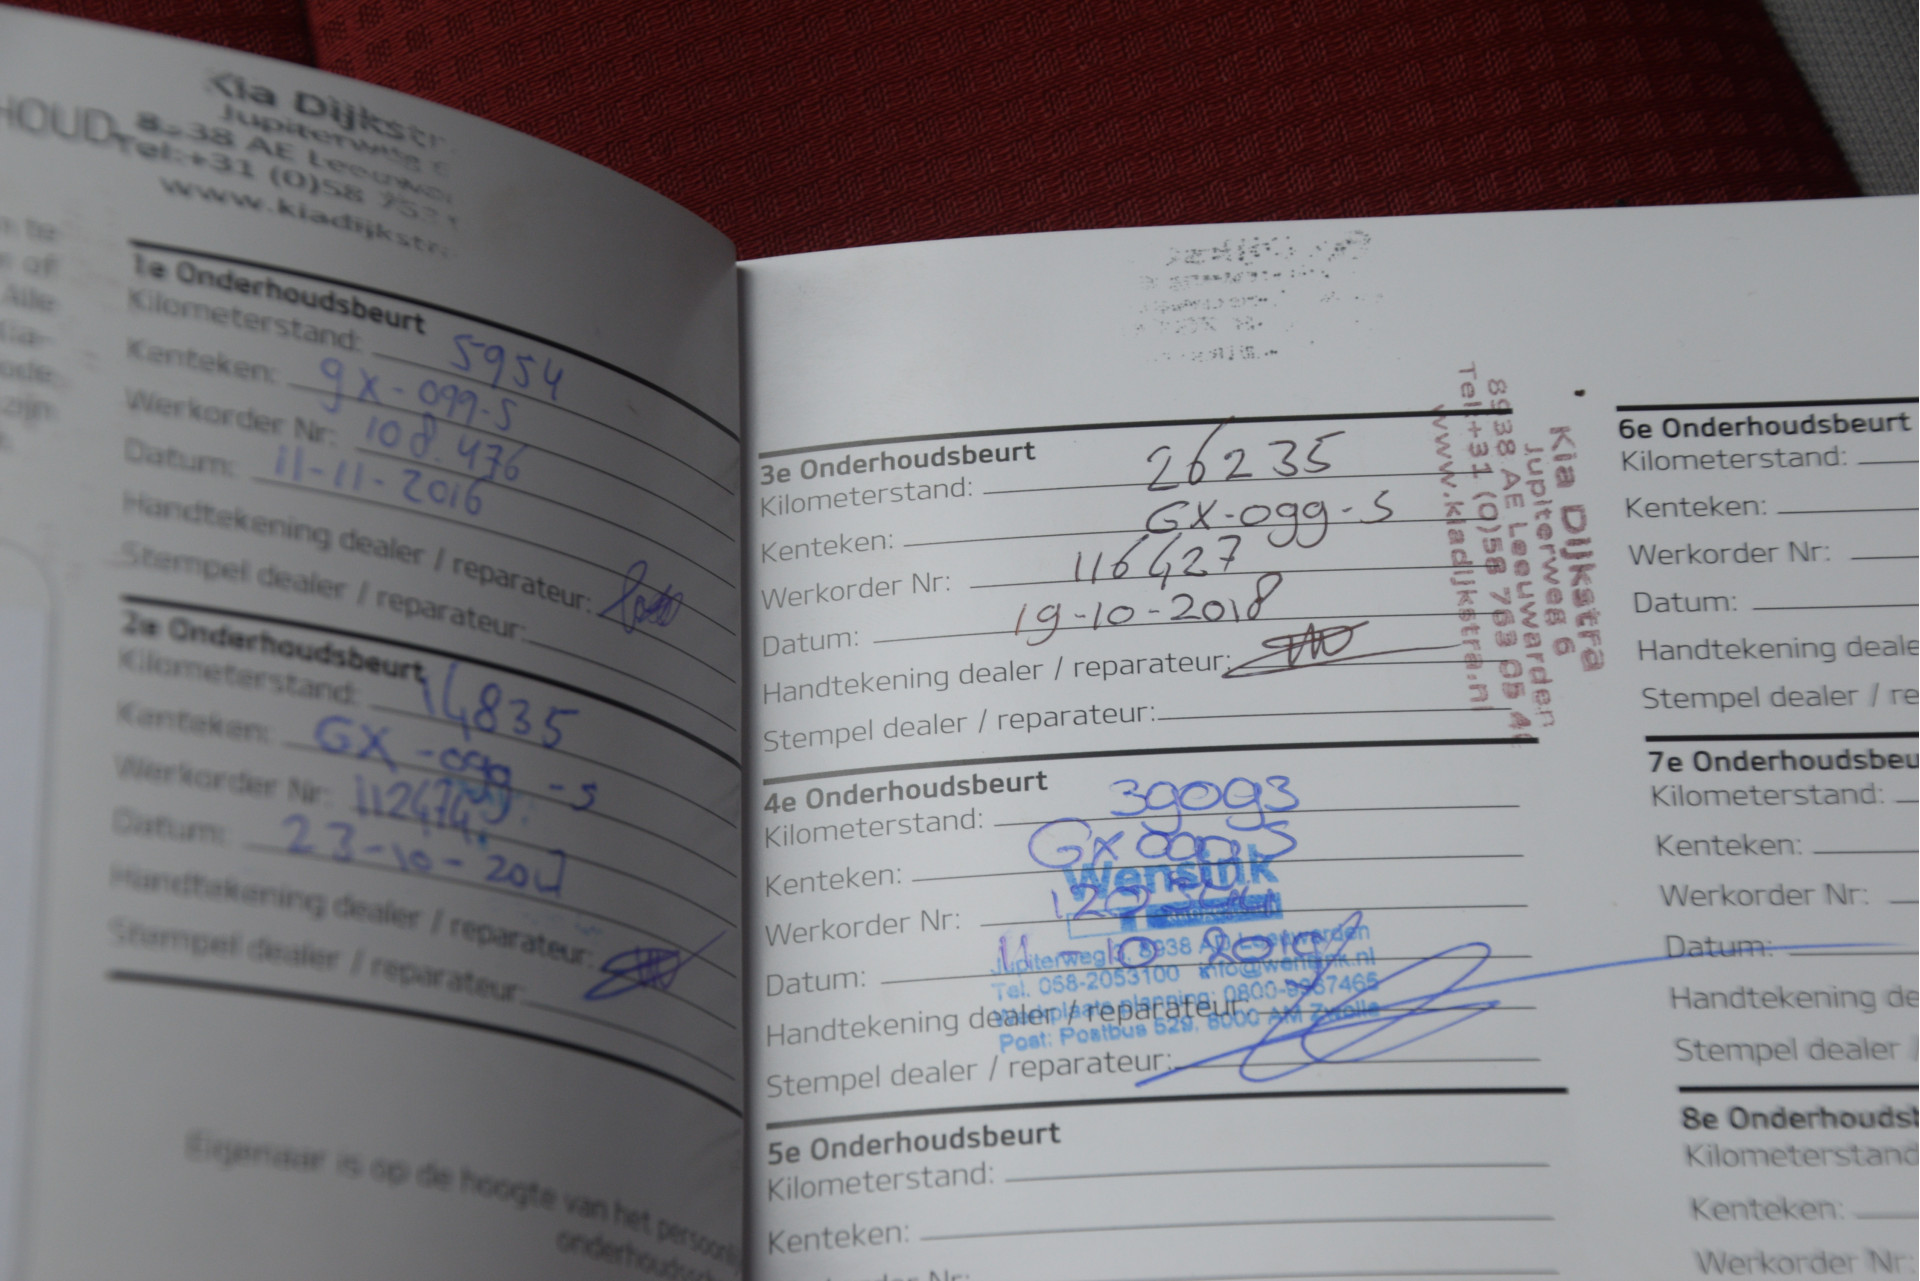 HOUD
Kia Dijkstr
Jupiterweg 6
8938 AE Leeuwar
Tel:+31 (0)58
www.kiadijkstr
1e Onderhoudsbeurt
Kilometerstand: 5954
Kenteken: gx-099-S
Werkorder Nr: 108.476
Datum: 11-11-2016
Handtekening dealer / reparateur:
Stempel dealer / reparateur:
2e Onderhoudsbeurt
Kilometerstand: 14835
Kenteken: GX-099-S
Werkorder Nr: 112474
Datum: 23-10-2017
Handtekening dealer / reparateur:
Stempel dealer / reparateur:
Eigenaar is op de hoogte van het persoonli
onderhoudssch
3e Onderhoudsbeurt
Kilometerstand: 26235
Kenteken: GX-099-S
Werkorder Nr: 116427
Datum: 19-10-2018
Handtekening dealer / reparateur:
Stempel dealer / reparateur:
Kia Dijkstra
Jupiterweg 6
8938 AE Leeuwarden
Tel:+31 (0)58 763 05 40
www.kiadijkstra.nl
4e Onderhoudsbeurt
Kilometerstand: 39093
Kenteken: GX 099 S
Werkorder Nr:
Datum: 11-10
Handtekening dealer / reparateur:
Stempel dealer / reparateur:
Wensink
Jupiterweg 8938 AD Leeuwarden
Tel. 058-2053100 info@wensink.nl
Werkplaats planning: 0800-9367465
Post: Postbus 529, 8000 AM Zwolle
5e Onderhoudsbeurt
Kilometerstand:
Kenteken:
6e Onderhoudsbeurt
Kilometerstand:
Kenteken:
Werkorder Nr:
Datum:
Handtekening deale
Stempel dealer / re
7e Onderhoudsbeu
Kilometerstand:
Kenteken:
Werkorder Nr:
Datum:
Handtekening de
Stempel dealer /
8e Onderhoudsb
Kilometerstand
Kenteken:
Werkorder Nr: